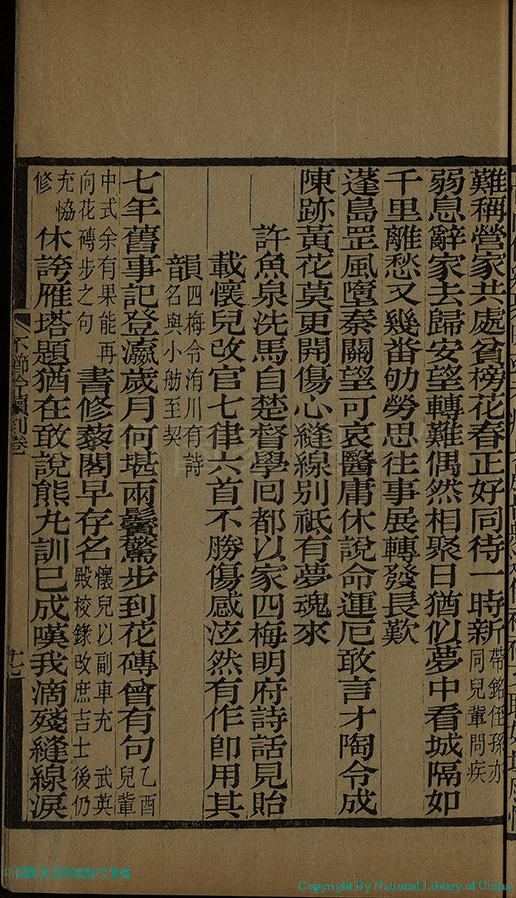 難稱營家共處貧榜花春正好同待一時新帶銘侄孫亦同兒輩問疾
弱息辭家去歸安望轉難偶然相聚日猶似夢中看城隔如
千里離愁又幾畨劬勞思往事展轉發長歎
蓬島罡風墮秦關望可哀醫庸休說命運厄敢言才陶令成
陳跡黃花莫更開傷心縫線別祇有夢魂來
許魚泉洗馬自楚督學回都以家四梅明府詩話見貽
載懷兒改官七律六首不勝傷感泫然有作卽用其
韻四梅令洧川有詩名與小舫至契
七年舊事記登瀛歲月何堪兩鬢驚步到花磚曾有句乙酉兒輩
中式余有果能再向花磚步之句書修藜閣早存名懷兒以副車充武英殿校錄改庶吉士後仍
充協修休誇雁塔題猶在敢說熊丸訓已成嘆我滴殘縫線淚
不櫛吟續刊卷
十七
Copyright By National Library of China